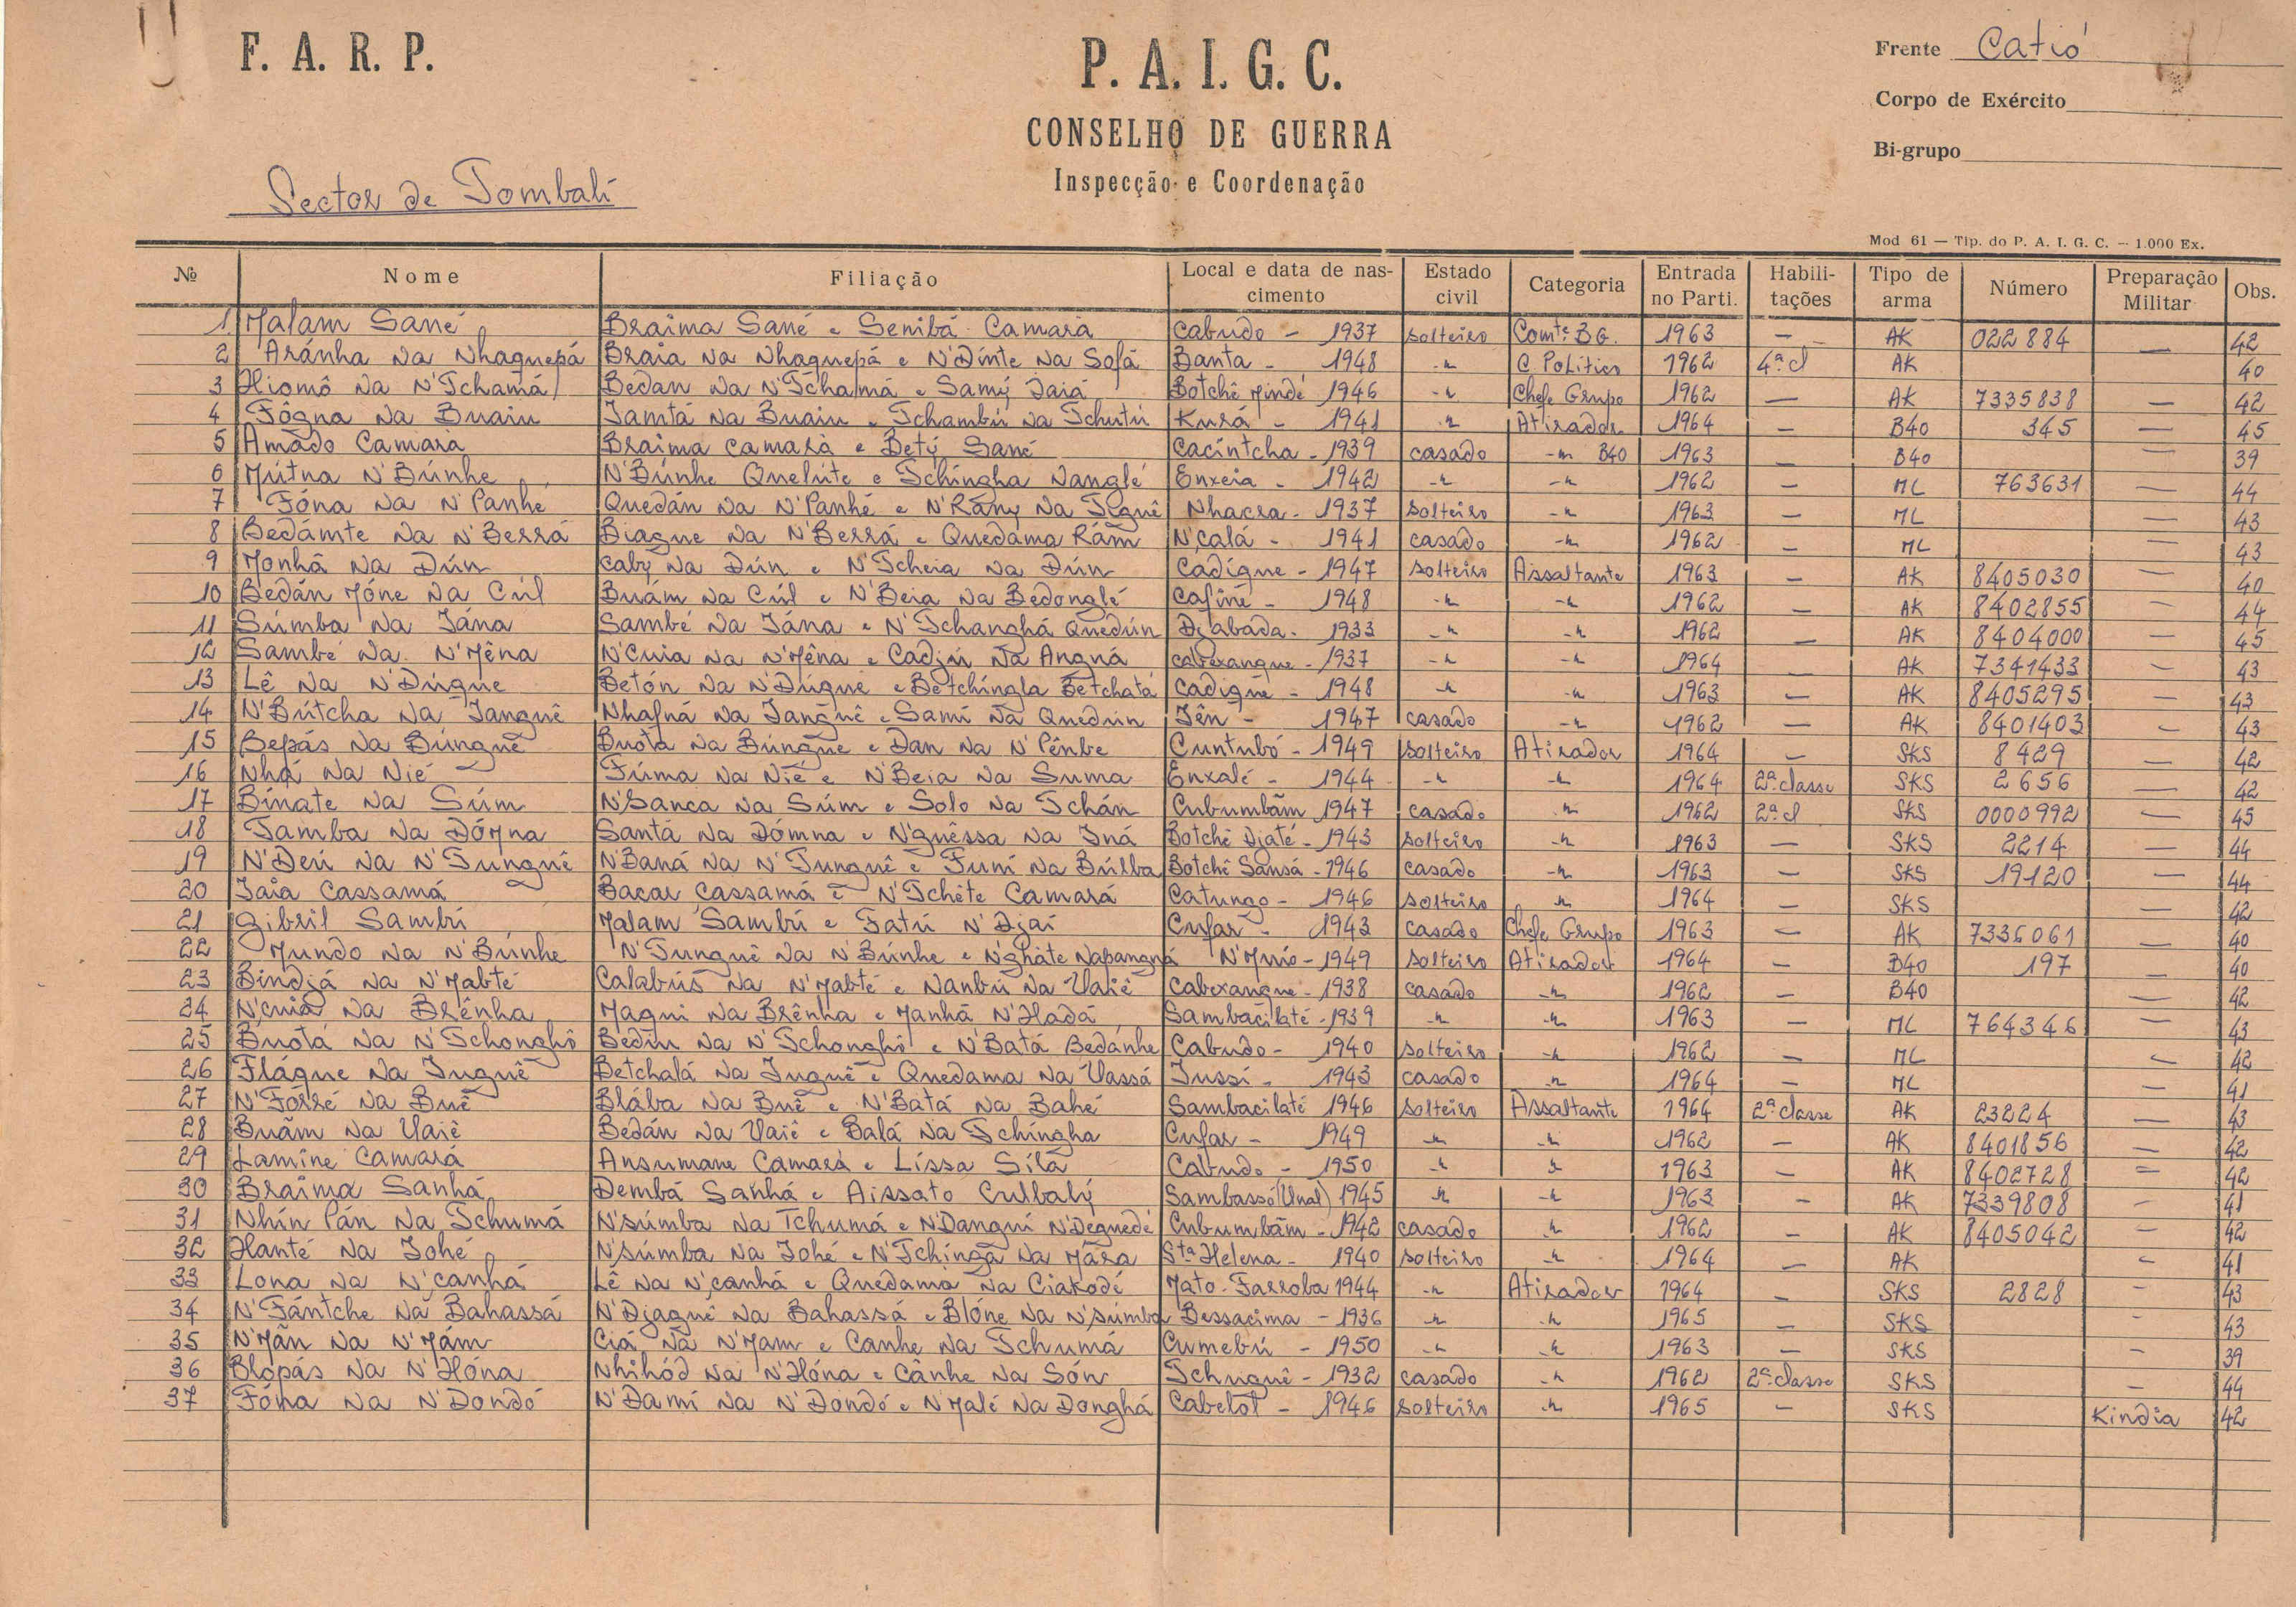 F. A. R. P.
P. A. I. G. C.
CONSELHO DE GUERRA
Inspecção e Coordenação
Frente Catió
Corpo de Exército
Bi-grupo
Sector de Tombali
Mod 61 — Tip. do P. A. I. G. C. — 1.000 Ex.
Nº Nome Filiação Local e data de nascimento Estado civil Categoria Entrada no Parti. Habilitações Tipo de arma Número Preparação Militar Obs.
1 Malam Sané Braima Sané e Senibá Camará Cabudo - 1937 solteiro Comte. BG. 1963 — AK 022884 — 42
2 Aránha Na Nhaguepá Braia Na Nhaguepá e N'Dinte Na Sofá Banta - 1948 -"- C Politico 1962 4ª cl AK 40
3 Hiomô Na N'Tchamá Bedan Na N'Tchamá e Samý Iaiá Botchê Mindé 1946 -"- Chefe Grupo 1962 — AK 7335838 — 42
4 Fôgna Na Buaiu Iamtá Na Buaiu e Tchambú Na Tchutú Kurá - 1941 -"- Atirador 1964 — B40 345 — 45
5 Amado Camara Braima Camará e Betý Sané Cacintcha - 1939 casado -"- B40 1963 — B40 — 39
6 Mútna N'Búnhe N'Búnhe Quelúte e Tchingha Nanglé Enxeia - 1942 -"- -"- 1962 — ML 763631 — 44
7 Fóna Na N'Panhé Quedán Na N'Panhé e N'Rány Na Tiguê Nhacra - 1937 solteiro -"- 1963 — ML — 43
8 Bedámte Na N'Berrá Biague Na N'Berrá e Quedama Rám N'calá - 1941 casado -"- 1962 — ML — 43
9 Monhã Na Dún Caby Na Dún e N'Tcheia Na Dún Cadique - 1947 solteiro Assaltante 1963 — AK 8405030 — 40
10 Bedán Móne Na Cúl Buám Na Cúl e N'Beia Na Bedonglé Cafine - 1948 -"- -"- 1962 — AK 8402855 — 44
11 Súmba Na Iána Sambé Na Iána e N'Tchanghá Quedún Djabada - 1933 -"- -"- 1962 — AK 8404000 — 45
12 Sambé Na N'Mêna N'Cuia Na N'Mêna e Cadjú Na Angná Cabexanque - 1937 -"- -"- 1964 — AK 7341433 — 43
13 Lê Na N'Dúgue Betón Na N'Dúgue e Betchingla Betchatá Cadique - 1948 -"- -"- 1963 — AK 8405295 — 43
14 N'Bútcha Na Ianguê Nhafná Na Ianguê e Samí Na Quedún Iên - 1947 casado -"- 1962 — AK 8401403 — 43
15 Bepás Na Búnguê Buota Na Búngue e Dan Na N'Pênbe Cuntubó - 1949 solteiro Atirador 1964 — SKS 8429 — 42
16 Nhá Na Nié Fúma Na Nié e N'Beia Na Suma Enxalé - 1944 -"- -"- 1964 2ª classe SKS 2656 — 42
17 Bínate Na Súm N'Sanca Na Súm e Solo Na Tchán Cubumbãm 1947 casado -"- 1962 2ª cl SKS 0000992 — 45
18 Tamba Na Dómna Santá Na Dómna e N'guêssa Na Iná Botchê Djaté - 1943 solteiro -"- 1963 — SKS 2214 — 44
19 N'Deú Na N'Tunguê N'Baná Na N'Tunguê e Funí Na Búlba Botchê Sansá - 1946 casado -"- 1963 — SKS 19120 — 44
20 Iaia Cassamá Bacar Cassamá e N'Tchite Camará Catungo - 1946 solteiro -"- 1964 — SKS — 42
21 Gibril Sambú Malam Sambú e Fatú N'Djai Cufar - 1943 casado Chefe Grupo 1963 — AK 7336061 — 40
22 Mundo Na N'Búnhe N'Tunguê Na N'Búnhe e N'ghate Napangná N'Múo - 1949 solteiro Atirador 1964 — B40 197 — 40
23 Bindjá Na N'Mabté Calabús Na N'Mabté e Nanbú Na Uaiê Cabexanque - 1938 casado -"- 1962 — B40 — 42
24 N'cuia Na Brênha Maqui Na Brênha e Manhã N'Hada Sambacilaté - 1939 -"- -"- 1963 — ML 764346 — 43
25 Buotá Na N'Tchonghô Bediú Na N'Tchonghô e N'Batá Bedánhe Cabudo - 1940 solteiro -"- 1962 — ML — 42
26 Flágue Na Iuguê Betchalá Na Iuguê e Quedama Na Uassá Iussi - 1943 casado -"- 1964 — ML 41
27 N'Fórré Na Buê Blába Na Buê e N'Batá Na Bahé Sambacilaté 1946 solteiro Assaltante 1964 2ª classe AK 23224 — 43
28 Buãm Na Uaiê Bedán Na Uaiê e Balá Na Tchingha Cufar - 1949 -"- -"- 1962 — AK 8401856 — 42
29 Lamine Camará Ansumane Camará e Lissa Silá Cabudo - 1950 -"- -"- 1963 — AK 8402728 — 42
30 Braima Sanhá Dembá Sanhá e Aissato Culbalý Sambassó (Unal) 1945 -"- -"- 1963 — AK 7339808 — 41
31 Nhín Pán Na Tchumá N'súmba Na Tchumá e N'Danguí N'Deguedé Cubumbãm - 1942 casado -"- 1962 — AK 8405042 — 42
32 Hanté Na Iohé N'súmba Na Iohé e N'Tchinga Na Mãra Sta Helena - 1940 solteiro -"- 1964 — AK — 41
33 Lona Na N'canhá Lé Na N'canhá e Quedama Na Ciakodé Mato-Farroba 1944 -"- Atirador 1964 — SKS 2828 — 43
34 N'Fántche Na Bahassá N'Djagué Na Bahassá e Blóne Na N'súmba Bessacima - 1936 -"- -"- 1965 — SKS — 43
35 N'Mãn Na N'Mám Ciá Na N'Mam e Canhe Na Tchumá Cumebú - 1950 -"- -"- 1963 — SKS — 39
36 Blopás Na N'Hóna Nhihód Na N'Hóna e Cânhe Na Són Tchuguê - 1932 casado -"- 1962 2ª classe SKS — 44
37 Fóna Na N'Dondó N'Damí Na N'Dondó e N'Malé Na Donghá Cabelol - 1946 solteiro -"- 1965 — SKS Kindia 42